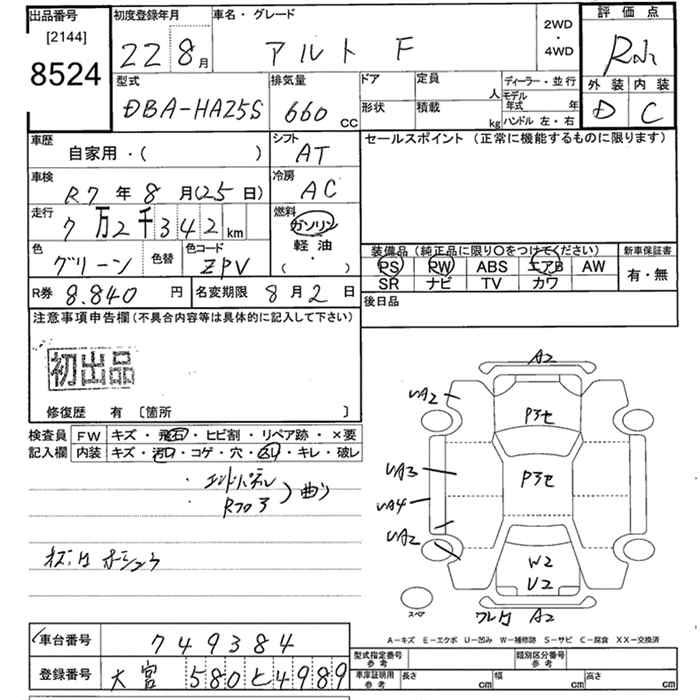 出品番号
[2144]
8524
初度登録年月
22 8月
車名・グレード
アルト F
2WD
・
4WD
評価点
R
外装 内装
D C
型式
DBA-HA25S
排気量
660 CC
ドア
定員
人
形状
積載
kg
ディーラー・並行
モデル
年式 年
ハンドル 左・右
車歴
自家用・( )
シフト
AT
セールスポイント (正常に機能するものに限ります)
車検
R7年8月(25日)
冷房
AC
走行
7万2千342km
燃料
ガソリン
軽油
( ・ )
色
グリーン
色替
色コード
ZPV
装備品 (純正品に限り○をつけてください)
PS PW ABS エアB AW
SR ナビ TV カワ
新車保証書
有・無
R券 8,840円
名変期限 8月2日
後日品
注意事項申告欄(不具合内容等は具体的に記入して下さい)
初出品
修復歴 有 [箇所 ]
検査員
記入欄
FW キズ・飛石・ヒビ割・リペア跡・×要
内装 キズ・汚れ・コゲ・穴・スレ・キレ・破レ
・エンドパネル
・Rフロア
曲り
A2
UA2
Pヌセ
UA3
Pヌセ
UA4
UA2
W2
U2
スペア
ワレ A2
A-キズ E-エクボ U-凹み W-補修跡 S-サビ C-腐食 XX-交換済
車台番号 749384
登録番号 大宮 580 と 4989
型式指定番号
参考
類別区分番号
参考
車庫証明用
参考
長さ cm
幅 cm
高さ cm